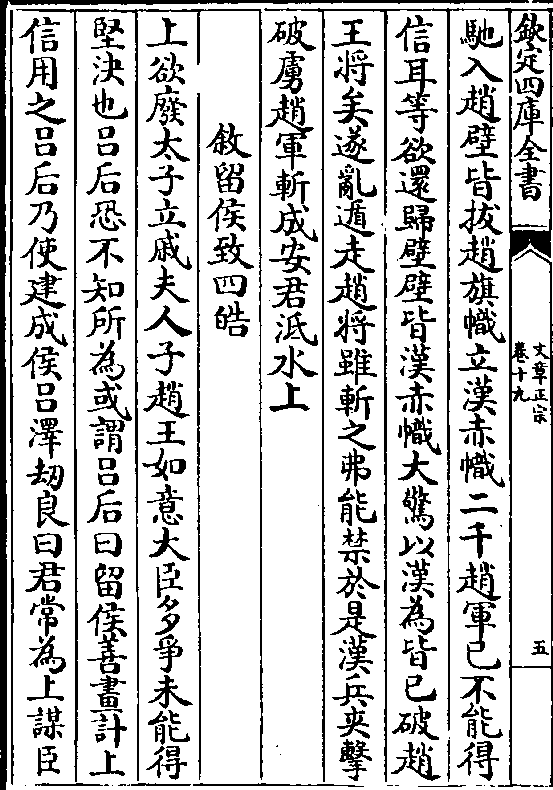 欽定四庫全書
文章正宗
卷十九
五
馳入趙壁皆拔趙旗幟立漢赤幟二千趙軍已不能得
信耳等欲還歸壁壁皆漢赤幟大驚以漢為皆已破趙
王將矣遂亂遁走趙將雖斬之弗能禁於是漢兵夾擊
破虜趙軍斬成安君泜水上
敘留侯致四皓
上欲廢太子立戚夫人子趙王如意大臣多爭未能得
堅決也呂后恐不知所為或謂呂后曰留侯善畫計上
信用之呂后乃使建成侯呂澤刼良曰君常為上謀臣